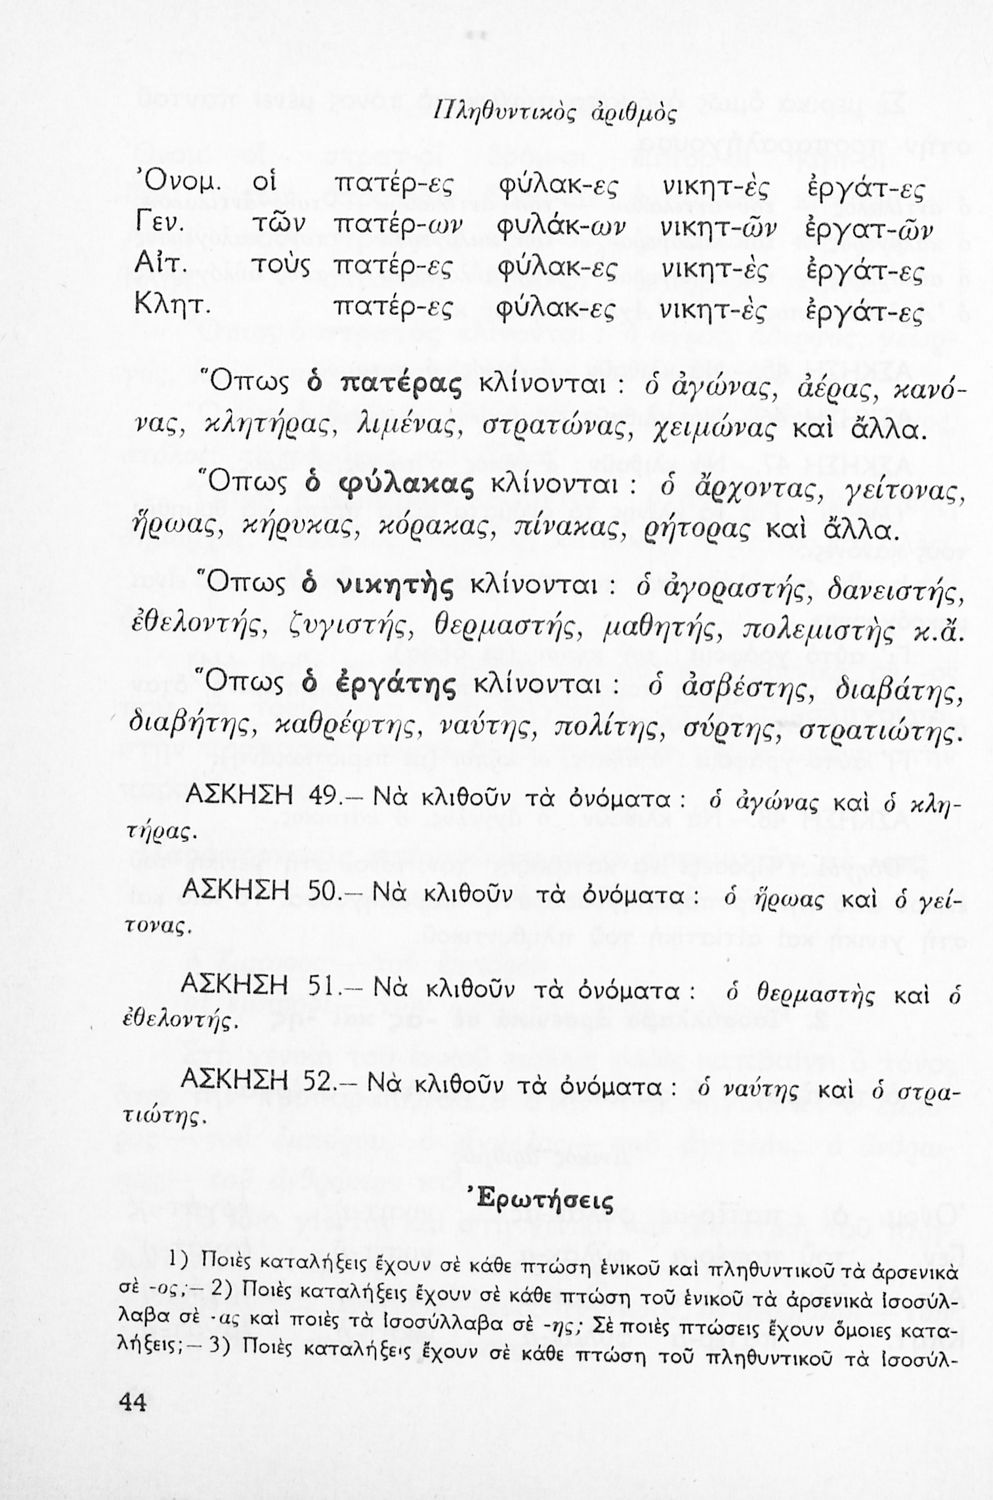 Πληθυντικὸς ἀριθμὸς
Ὀνομ. οἱ πατέρ-ες φύλακ-ες νικητ-ὲς ἐργάτ-ες
Γεν. τῶν πατέρ-ων φυλάκ-ων νικητ-ῶν ἐργατ-ῶν
Αἰτ. τοὺς πατέρ-ες φύλακ-ες νικητ-ὲς ἐργάτ-ες
Κλητ. πατέρ-ες φύλακ-ες νικητ-ὲς ἐργάτ-ες
Ὅπως ὁ πατέρας κλίνονται : ὁ ἀγώνας, ἀέρας, κανό-
νας, κλητήρας, λιμένας, στρατώνας, χειμώνας καὶ ἄλλα.
Ὅπως ὁ φύλακας κλίνονται : ὁ ἄρχοντας, γείτονας,
ἥρωας, κήρυκας, κόρακας, πίνακας, ρήτορας καὶ ἄλλα.
Ὅπως ὁ νικητὴς κλίνονται : ὁ ἀγοραστής, δανειστής,
ἐθελοντής, ζυγιστής, θερμαστής, μαθητής, πολεμιστὴς κ.ἄ.
Ὅπως ὁ ἐργάτης κλίνονται : ὁ ἀσβέστης, διαβάτης,
διαβήτης, καθρέφτης, ναύτης, πολίτης, σύρτης, στρατιώτης.
ΑΣΚΗΣΗ 49.— Νὰ κλιθοῦν τὰ ὀνόματα : ὁ ἀγώνας καὶ ὁ κλη-
τήρας.
ΑΣΚΗΣΗ 50.— Νὰ κλιθοῦν τὰ ὀνόματα : ὁ ἥρωας καὶ ὁ γεί-
τονας.
ΑΣΚΗΣΗ 51.— Νὰ κλιθοῦν τὰ ὀνόματα : ὁ θερμαστὴς καὶ ὁ
ἐθελοντής.
ΑΣΚΗΣΗ 52.— Νὰ κλιθοῦν τὰ ὀνόματα : ὁ ναύτης καὶ ὁ στρα-
τιώτης.
Ἐρωτήσεις
1) Ποιὲς καταλήξεις ἔχουν σὲ κάθε πτώση ἑνικοῦ καὶ πληθυντικοῦ τὰ ἀρσενικὰ
σὲ -ος;— 2) Ποιὲς καταλήξεις ἔχουν σὲ κάθε πτώση τοῦ ἑνικοῦ τὰ ἀρσενικὰ ἰσοσύλ-
λαβα σὲ -ας καὶ ποιὲς τὰ ἰσοσύλλαβα σὲ -ης; Σὲ ποιὲς πτώσεις ἔχουν ὅμοιες κατα-
λήξεις;— 3) Ποιὲς καταλήξεις ἔχουν σὲ κάθε πτώση τοῦ πληθυντικοῦ τὰ ἰσοσύλ-
44